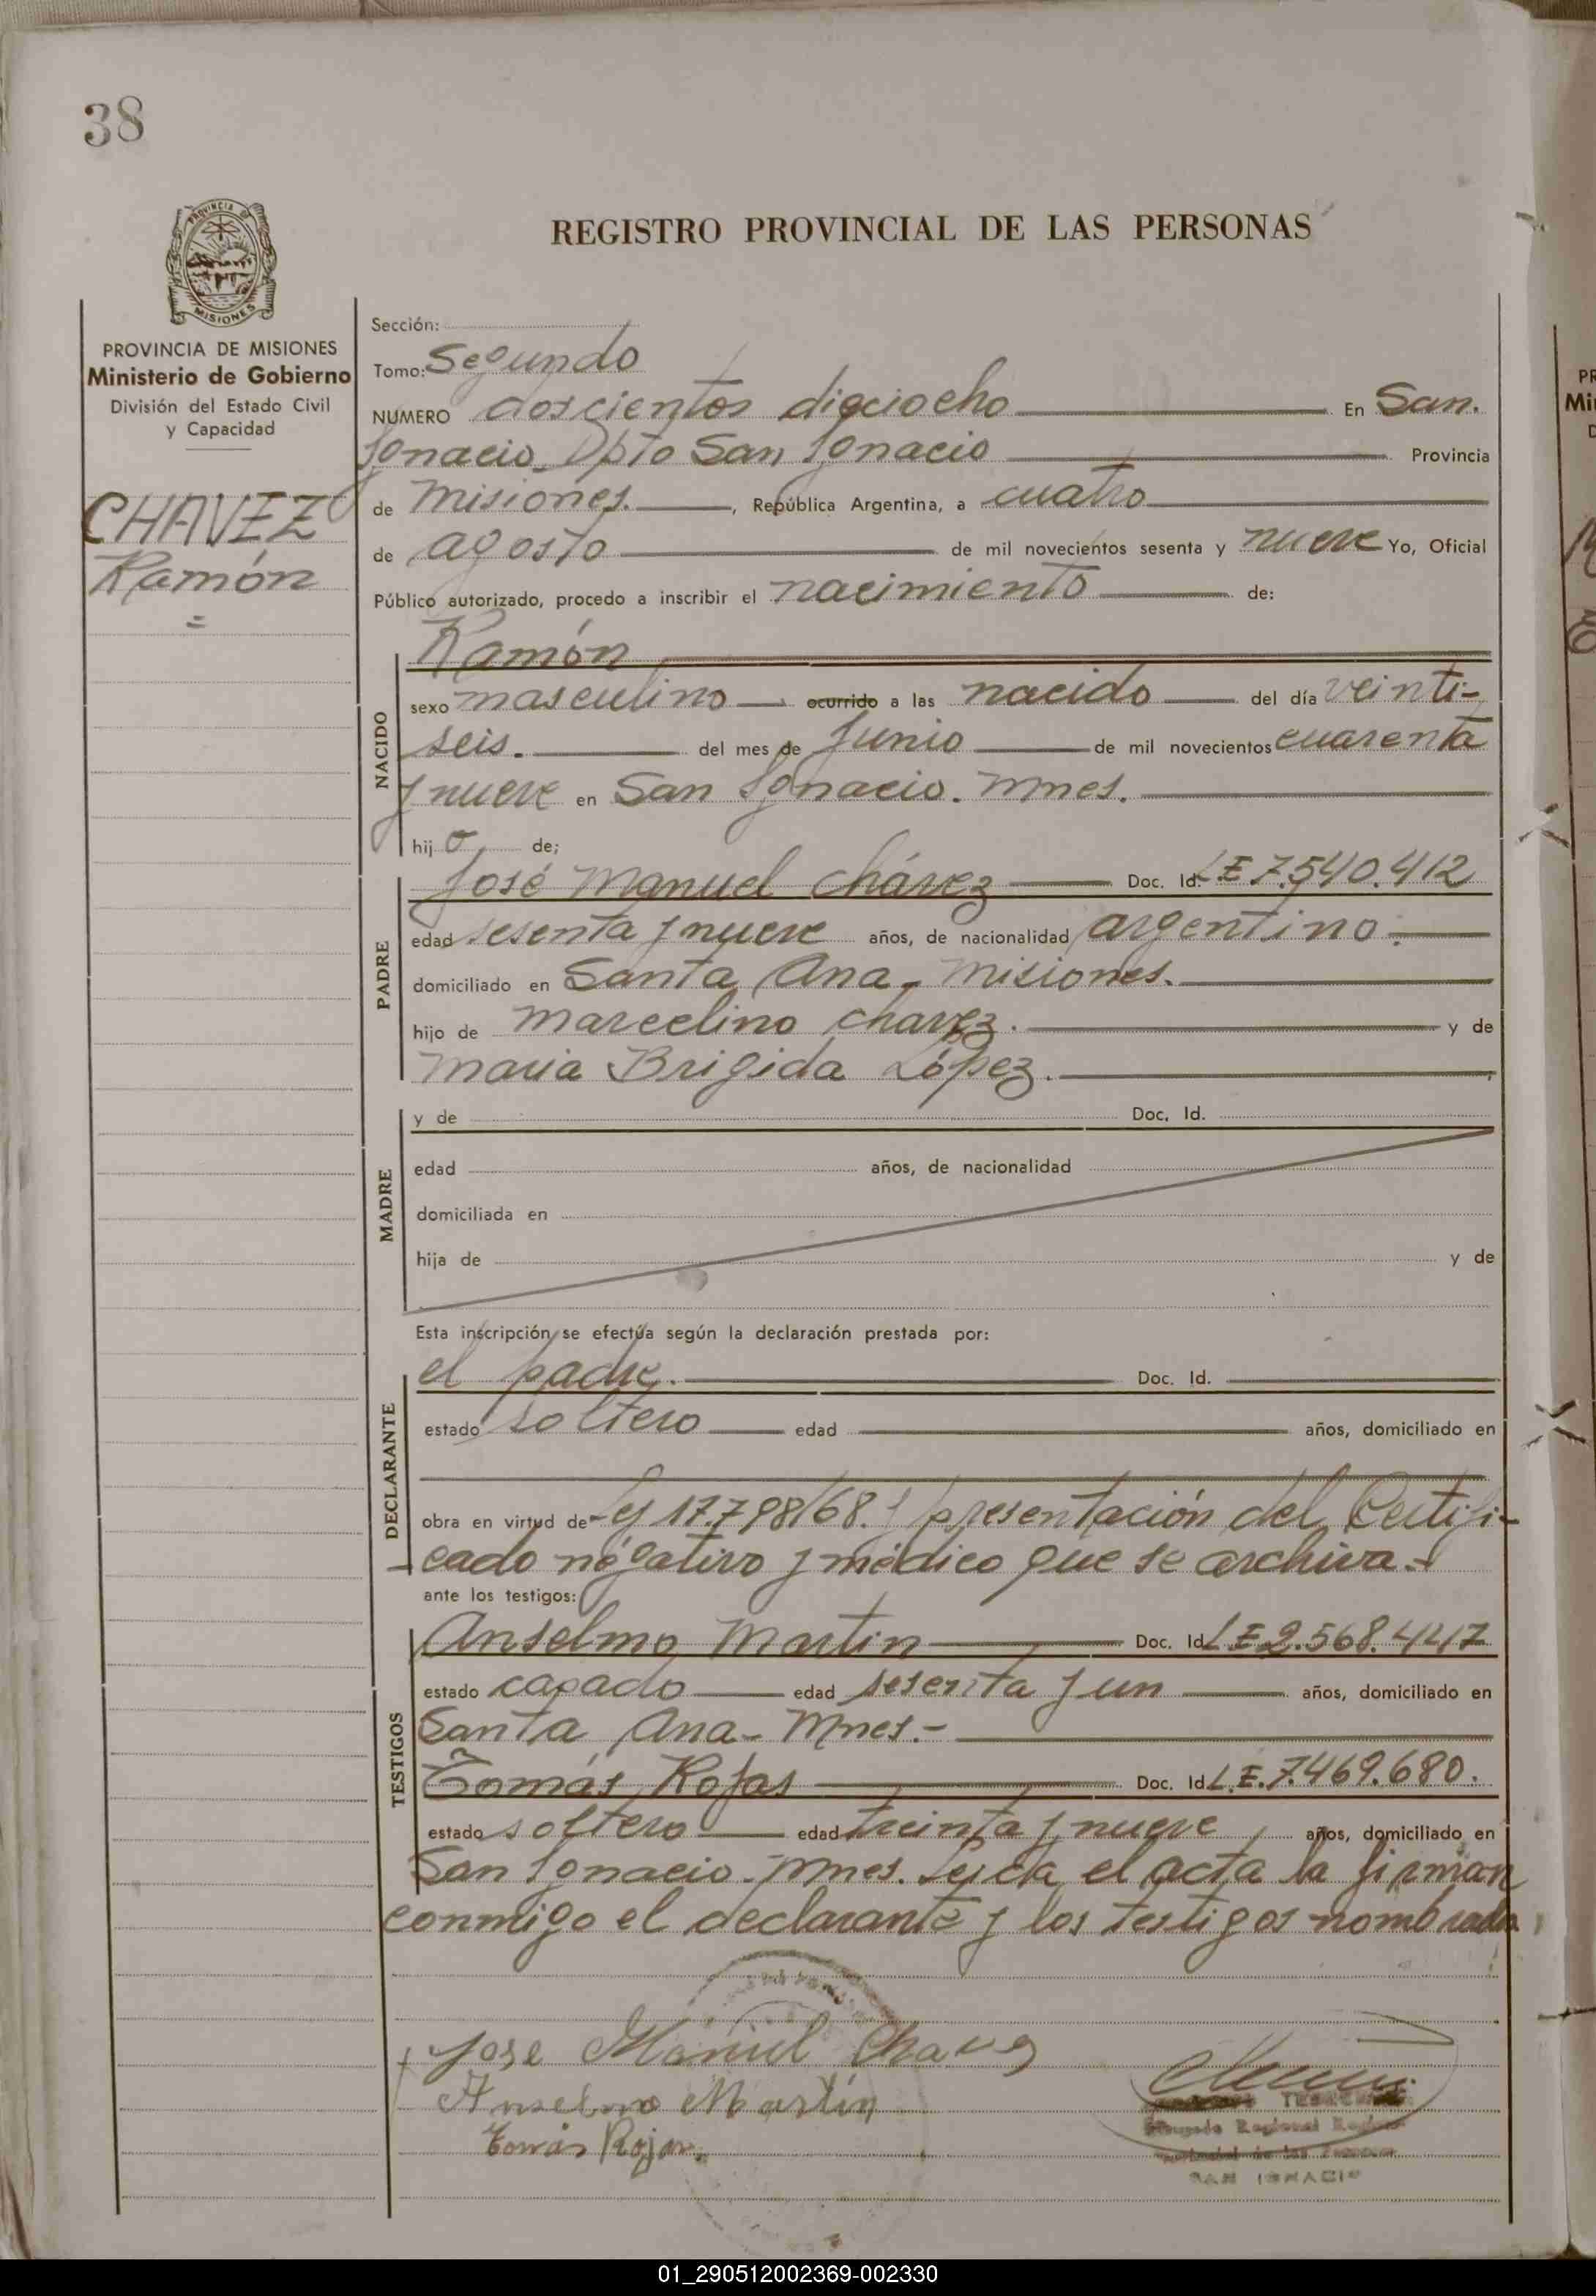 38
PROVINCIA DE
MISIONES
REGISTRO PROVINCIAL DE LAS PERSONAS
PROVINCIA DE MISIONES
Ministerio de Gobierno
División del Estado Civil
y Capacidad
CHAVEZ
Ramón
=
Sección:
Tomo: Segundo
NUMERO doscientos dieciocho En San.
Ignacio - Dpto San Ignacio Provincia
de Misiones. , República Argentina, a cuatro
de agosto de mil novecientos sesenta y nueve Yo, Oficial
Público autorizado, procedo a inscribir el nacimiento de:
NACIDO
Ramón
sexo masculino ocurrido a las nacido del día veinti-
seis. del mes de Junio de mil novecientos cuarenta
y nueve en San Ignacio. Mnes.
hij o de;
PADRE
José Manuel Chávez Doc. Id. L E 7.540.412
edad sesenta y nueve años, de nacionalidad argentino.
domiciliado en Santa Ana - Misiones.
hijo de Marcelino Chavez. y de
Maria Brigida López.
MADRE
y de Doc. Id.
edad años, de nacionalidad
domiciliada en
hija de y de
Esta inscripción se efectúa según la declaración prestada por:
DECLARANTE
el padre. Doc. Id.
estado soltero edad años, domiciliado en
obra en virtud de Ley 17.798/68. y presentación del Certifi-
cado negativo y médico que se archiva.-
ante los testigos:
TESTIGOS
Anselmo Martin Doc. Id. L.E 2.568.447
estado casado edad sesenta y un años, domiciliado en
Santa Ana - Mnes.-
Tomás Rojas Doc. Id. L.E. 7.469.680.
estado soltero edad treinta y nueve años, domiciliado en
San Ignacio - Mnes. Leída el acta la firman
conmigo el declarante y los testigos nombrados
Jose Manuel Chavez
Anselmo Martin
Tomás Rojas
Regional
SAN IGNACIO
01_290512002369-002330